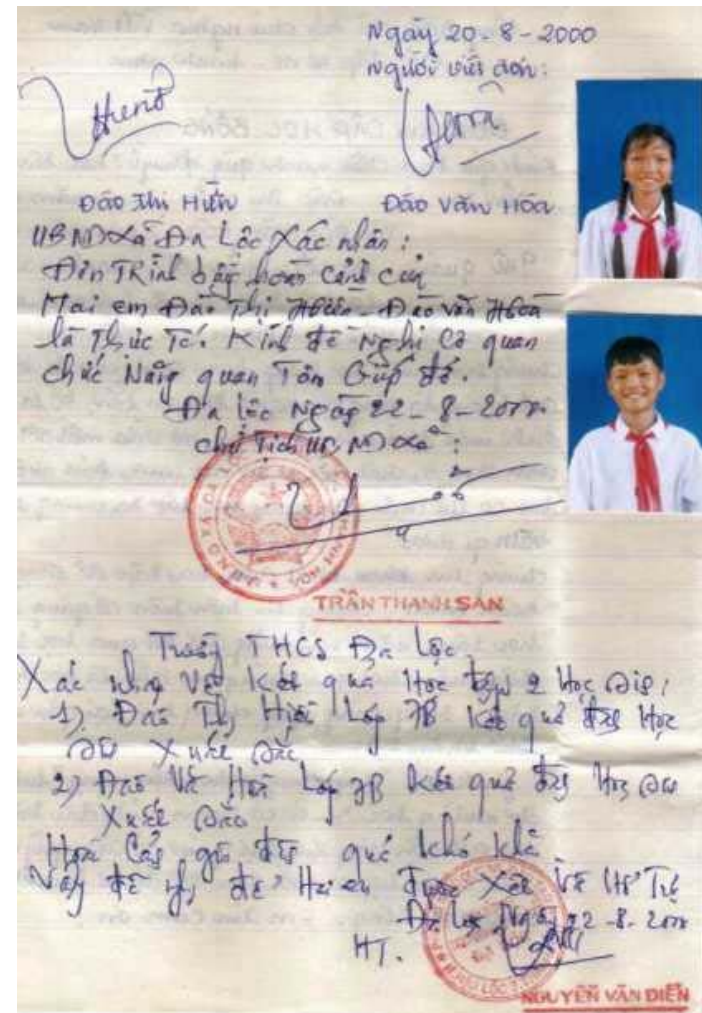 Ngày 20-8-2000
Người viết đơn:
Hiền
Hóa
Đào Thị Hiền Đào Văn Hóa
UBND Xã Đa Lộc Xác nhận:
Đơn Trình bày hoàn cảnh của
Hai em Đào Thị Hiền - Đào Văn Hoá
là Thực Tế. Kính đề Nghị Cơ quan
chức Năng quan Tâm Giúp đỡ.
Đa Lộc Ngày 22-8-2000
Chủ Tịch UBND Xã:
TRẦN THANH SAN
Trường THCS Đa Lộc
Xác nhận Về Kết quả Học tập 2 Học sinh:
1) Đào Thị Hiền Lớp 7B Kết quả Học
Xuất sắc
2) Đào Vă Hoá Lớp 7B Kết quả
Xuất sắc
Hoàn Cảnh quá khó khă
Vậy đề nghị để Hai em được Xét Về Hỗ Trợ
Đa Lộc Ngày 22-8-2000
HT.
NGUYỄN VĂN DIỄN